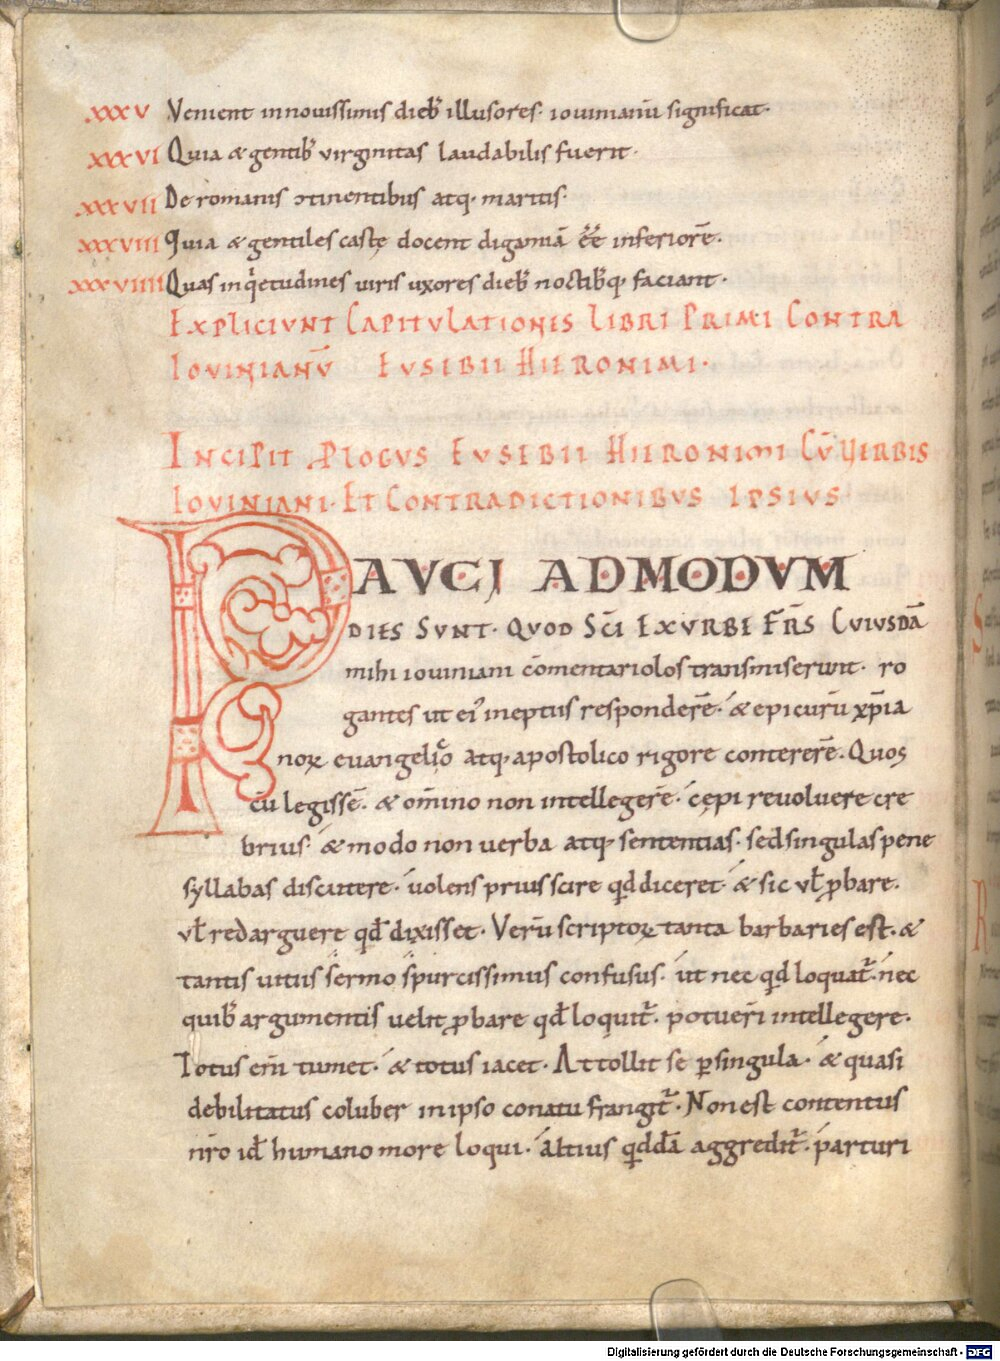 xxxv Venient in novissimis dieb; illusores. iovinianū significat.
xxxvi Quia & gentib; virginitas laudabilis fuerit.
xxxvii De romanis ɔtinentibus atq; maritis.
xxxviii Quia & gentiles castę docent digamiā ēē inferiorē.
xxxviiii Quas inq'etudines viris uxores dieb; noctib;q; faciant.
EXPLICIVNT CAPITVLATIONIS LIBRI PRIMI CONTRA
IOVINIANV̄ EVSEBII HIERONIMI.
INCIPIT ꝒLOGVS EVSEBII HIERONIMI CV̄ VERBIS
IOVINIANI. ET CONTRADICTIONIBVS IPSIVS
PAVCI ADMODVM
DIES SVNT. QVOD SC̄I EXVRBE FR̄S CVIVSDĀ
mihi ioviniani cōmentariolos transmiserunt. ro
gantes ut eiꝰ ineptiis responderē. & epicurū xp̄ia
noꝝ evangelico atq; apostolico rigore contererē. Quos
cū legissē. & om̄ino non intellegerē. cępi revoluere cre
brius. & modo non verba atq; sententias. sed singulas pene
syllabas discutere. volens prius scire qd diceret. & sic vł ꝓbare.
vł redarguere qđ dixisset. Verū scriptoꝝ tanta barbaries est. &
tantis vitiis sermo spurcissimus confusus. ut nec qd loquat̄. nec
quib; argumentis velit ꝓbare qđ loquit̄. potuerī intellegere.
Totus enī tumet. & totus iacet. Attollit se ꝑ singula. & quasi
debilitatus coluber in ipso conatu frangit̄. Non est contentus
nr̄o iđ humano more loqui. altius qddā aggredit̄. parturi
Digitalisierung gefördert durch die Deutsche Forschungsgemeinschaft - DFG